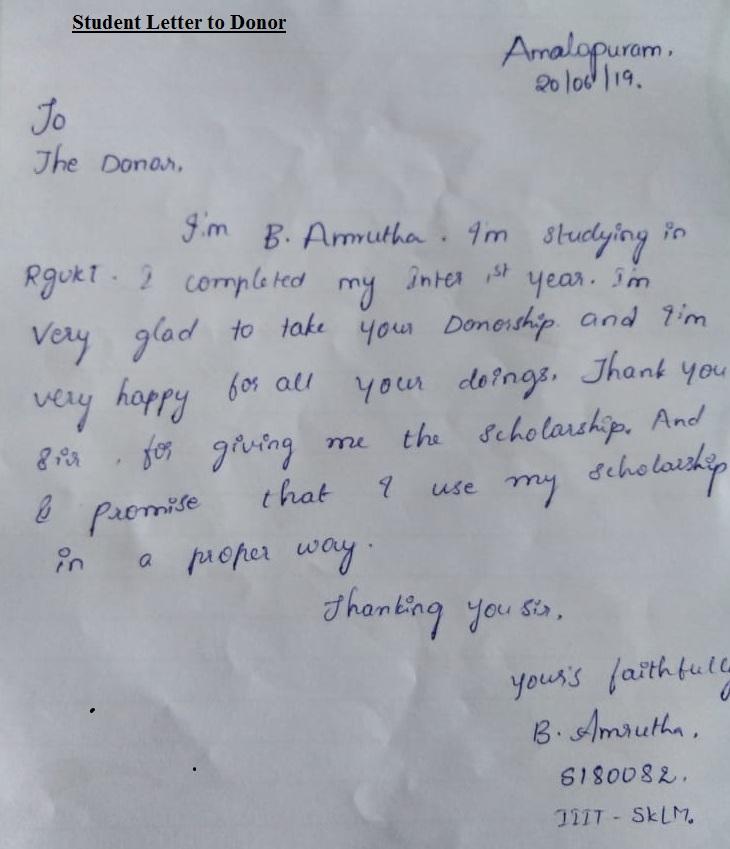 Student Letter to Donor
Amalapuram,
20/06/19.
To
The Donor,
I'm B. Amrutha. I'm studying in
RgukT. I completed my inter 1st year. I'm
very glad to take your Donorship and I'm
very happy for all your doings. Thank you
sir, for giving me the scholarship. And
I promise that I use my scholarship
in a proper way.
Thanking you sir,
your's faithfully
B. Amrutha,
S180082.
IIIT - SKLM.